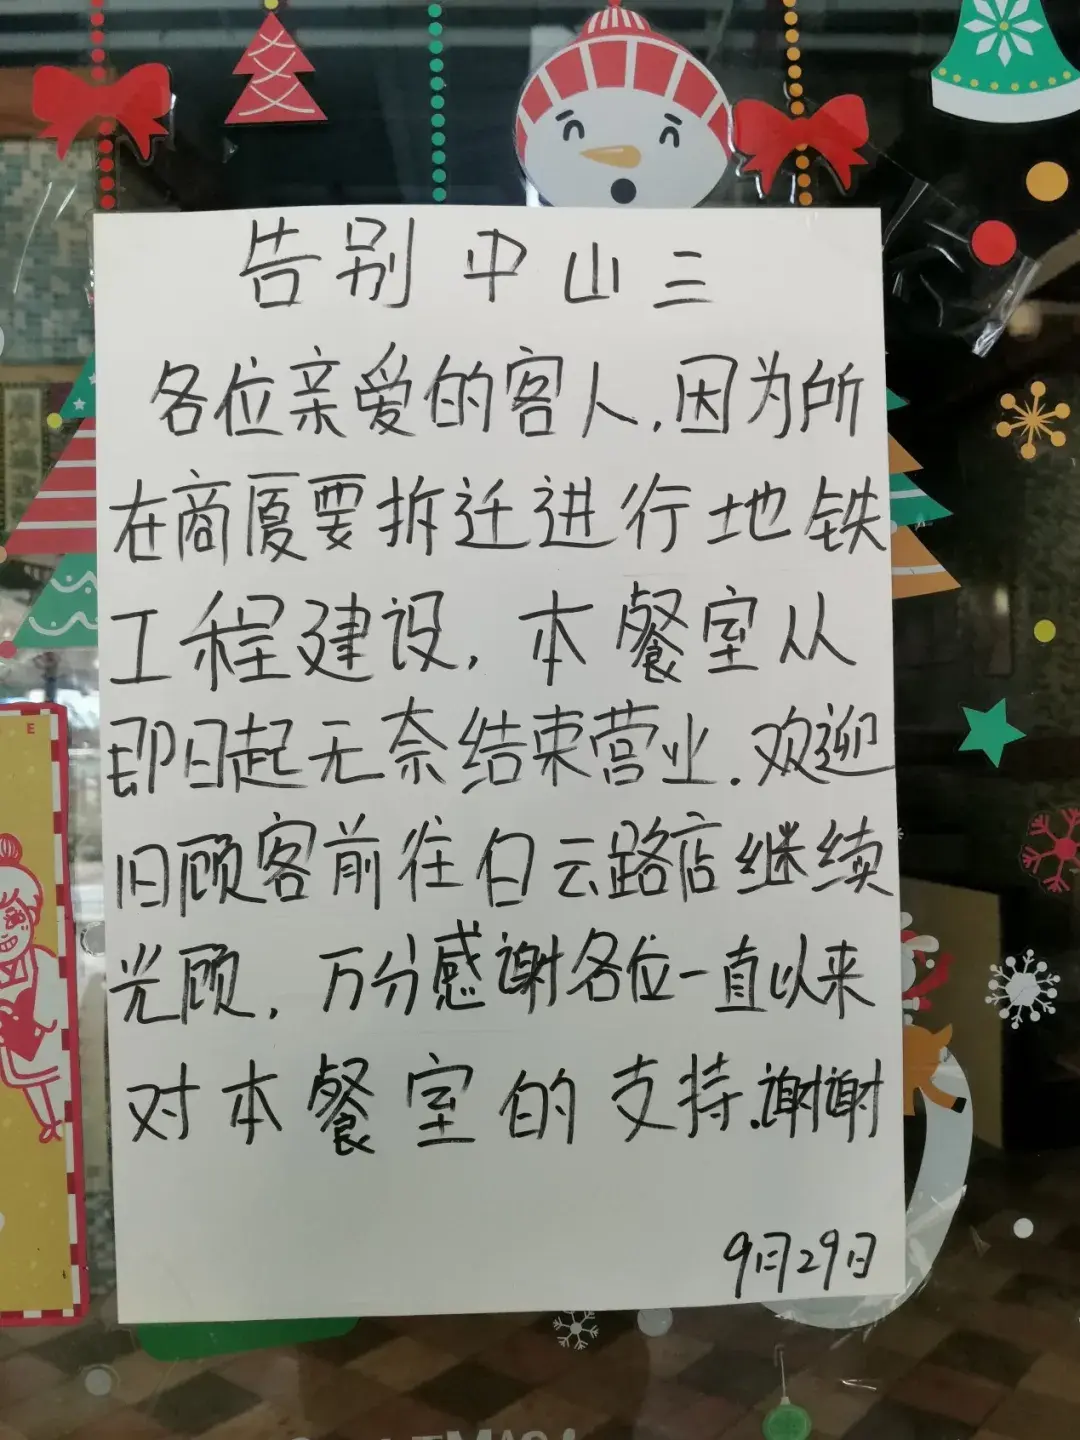 告别中山三
各位亲爱的客人，因为所
在商厦要拆迁进行地铁
工程建设，本餐室从
即日起无奈结束营业．欢迎
旧顾客前往白云路店继续
光顾，万分感谢各位一直以来
对本餐室的支持．谢谢
9月29日
E